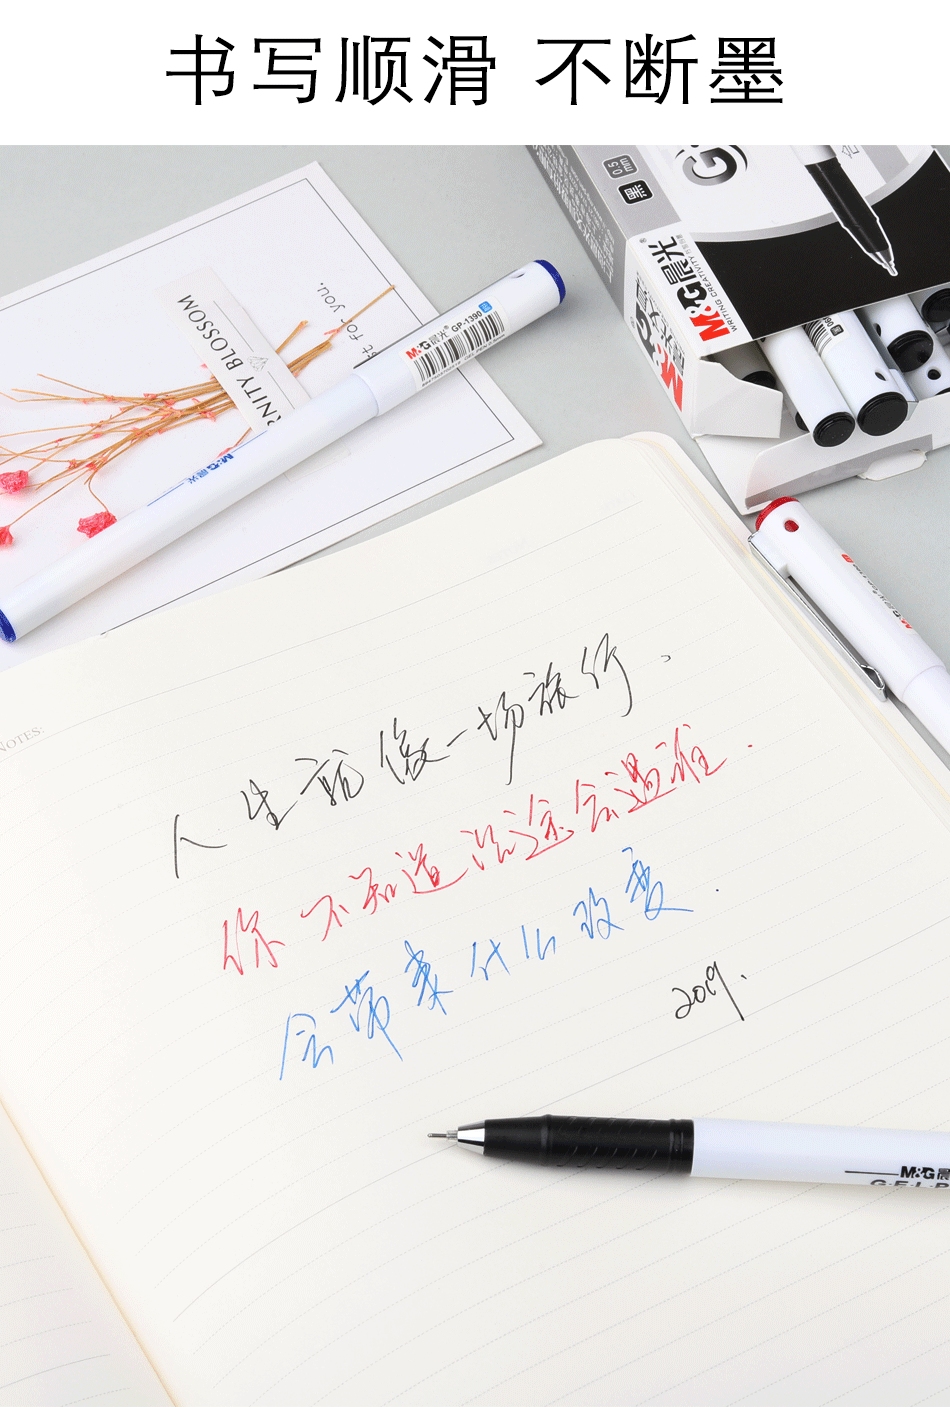 书写顺滑 不断墨
0.5 mm
M&G晨光
WRITING CREATIVITY
M&G晨光 GP-1390
for you.
BLOSSOM
M&G晨光
NOTES:
人生就像一场旅行，
你不知道沿途会遇谁.
会带来什么改变.
2019.
M&G晨